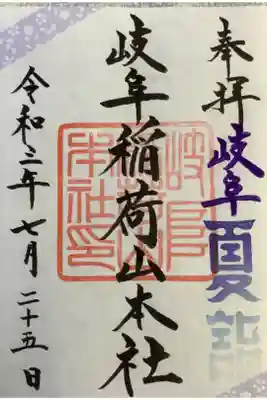 奉拝
岐阜夏詣
岐阜稲荷山本社
令和三年七月二十五日